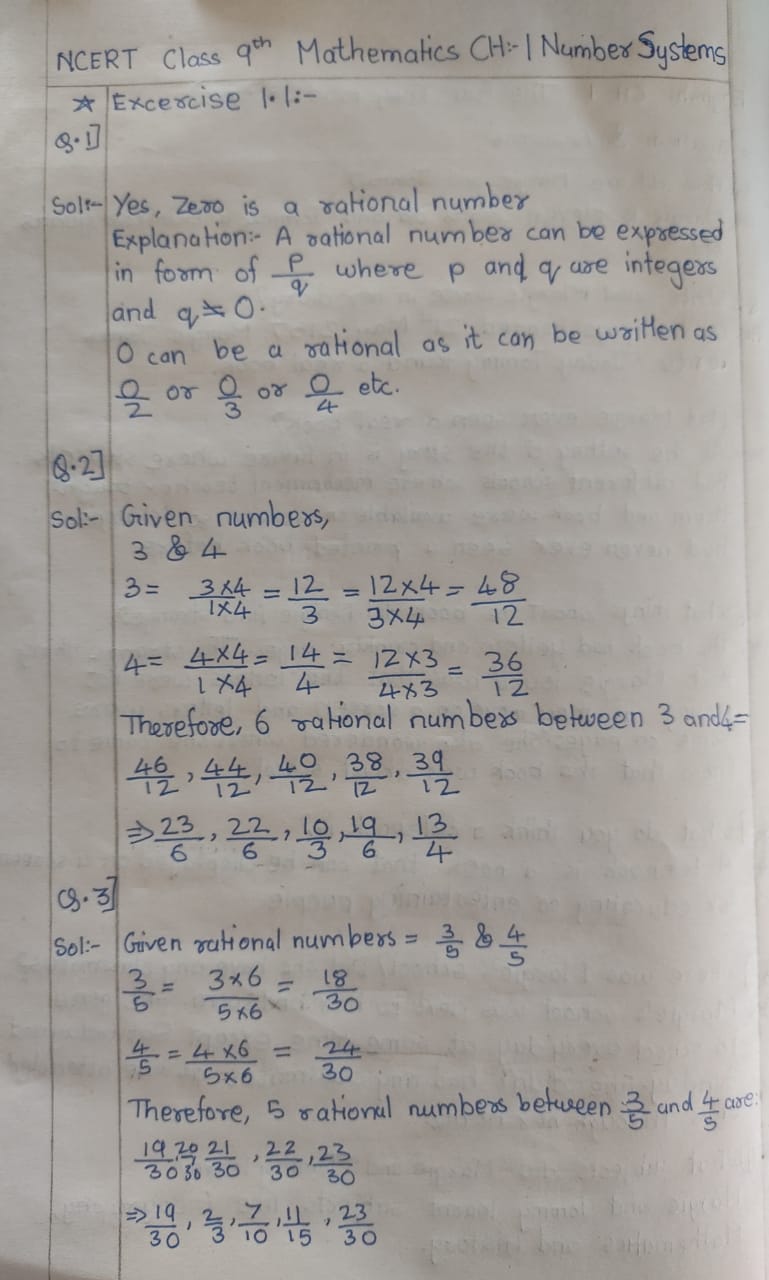 NCERT Class 9th Mathematics CH:- 1 Number Systems
☆ Excercise 1.1:-
Q.1]
Sol:- Yes, Zero is a rational number
Explanation:- A rational number can be expressed
in form of p/q where p and q are integers
and q ≠ 0.
0 can be a rational as it can be written as
0/2 or 0/3 or 0/4 etc.
Q.2]
Sol:- Given numbers,
3 & 4
3 = 3×4/1×4 = 12/3 = 12×4/3×4 = 48/12
4 = 4×4/1×4 = 14/4 = 12×3/4×3 = 36/12
Therefore, 6 rational numbers between 3 and 4 =
46/12, 44/12, 40/12, 38/12, 39/12
⇒ 23/6, 22/6, 10/3, 19/6, 13/4
Q.3]
Sol:- Given rational numbers = 3/5 & 4/5
3/5 = 3×6/5×6 = 18/30
4/5 = 4×6/5×6 = 24/30
Therefore, 5 rational numbers between 3/5 and 4/5 are:
19/30, 20/30, 21/30, 22/30, 23/30
⇒ 19/30, 2/3, 7/10, 11/15, 23/30